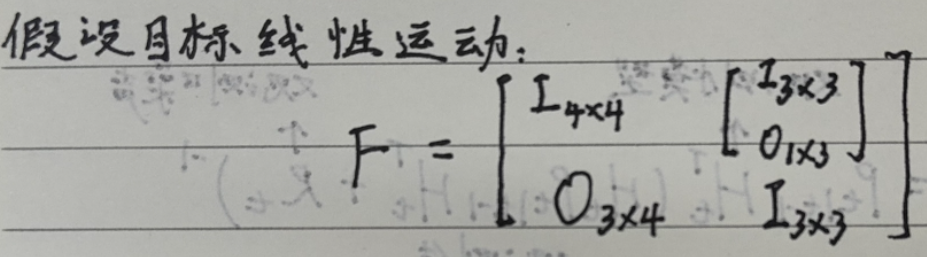 假设目标线性运动:
F = [ I_{4×4} [ I_{3×3} ; O_{1×3} ] ; O_{3×4} I_{3×3} ]